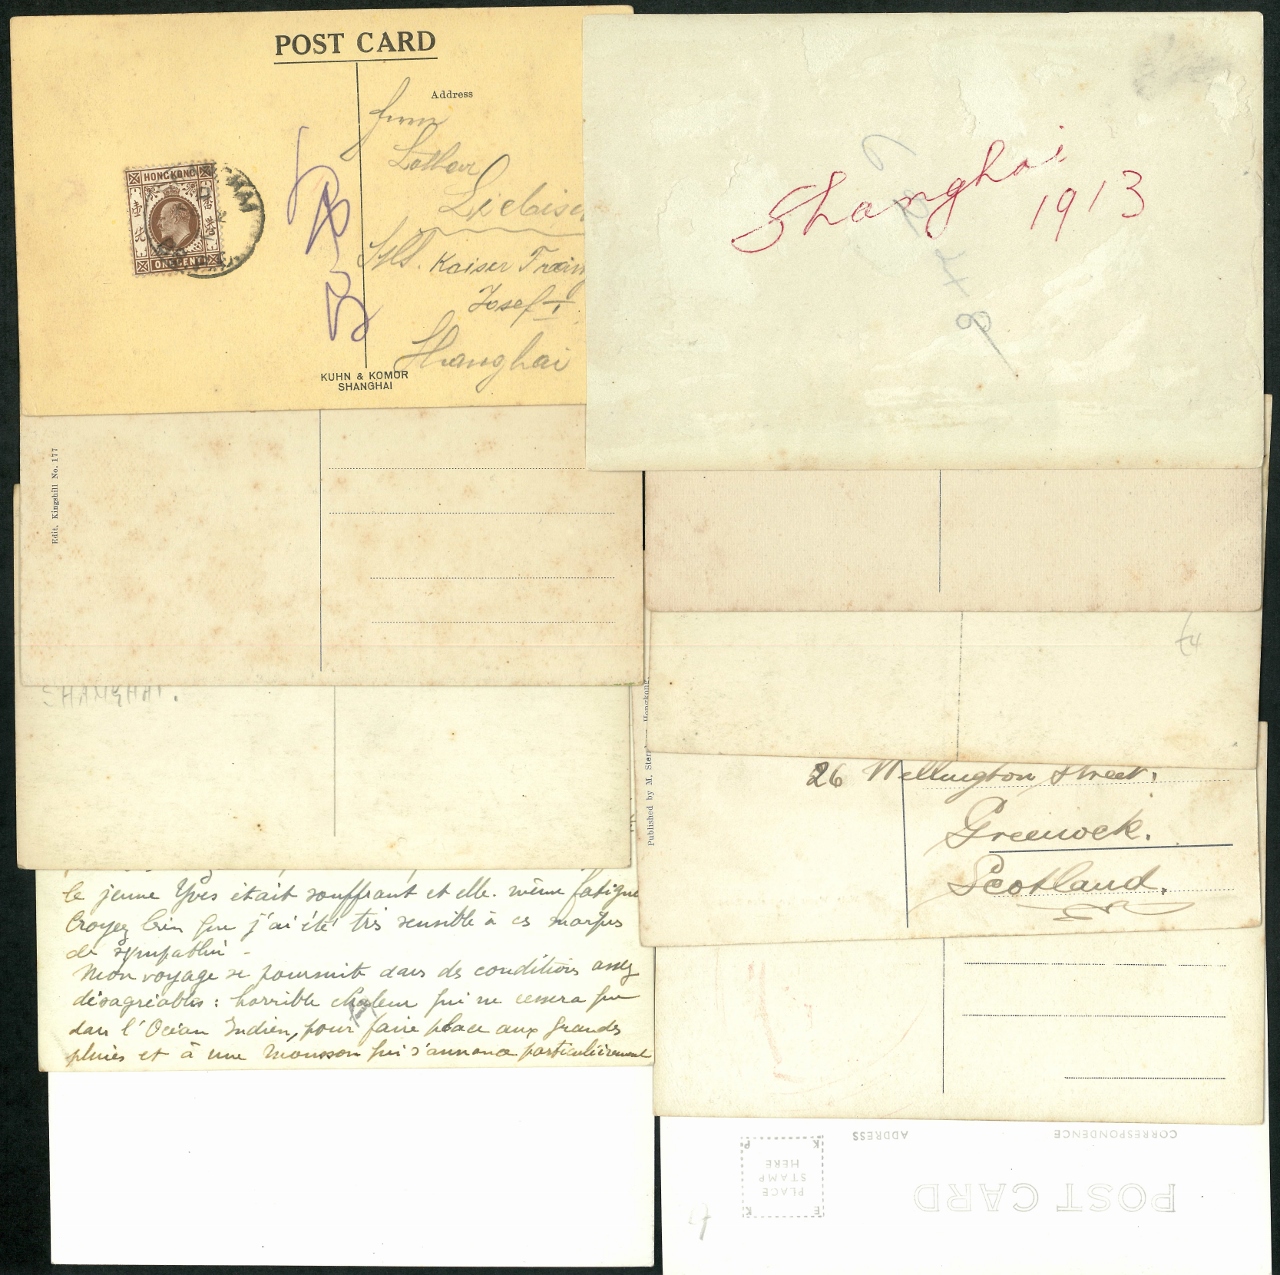 POST CARD
Address
Lothar
HONGKONG
ONE CENT
S.M.S. Kaiser Franz
Josef I.
Shanghai
KUHN & KOMOR
SHANGHAI
Shanghai
1913
Edit. Kingshill No. 177
SHANGHAI.
Published by M. Ster
Hongkong.
26 Wellington Street.
Greenock.
Scotland.
le jeune Yves était souffrant et elle-même
Croyez bien que j'ai été très sensible à ces marques
de sympathie.
Mon voyage se poursuit dans des conditions assez
désagréables : horrible chaleur qui ne cessera que
dans l'Océan Indien, pour faire place aux grandes
pluies et à une Mousson qui s'annonce particulièrement
CORRESPONDENCE
ADDRESS
POST CARD
PLACE
STAMP
HERE